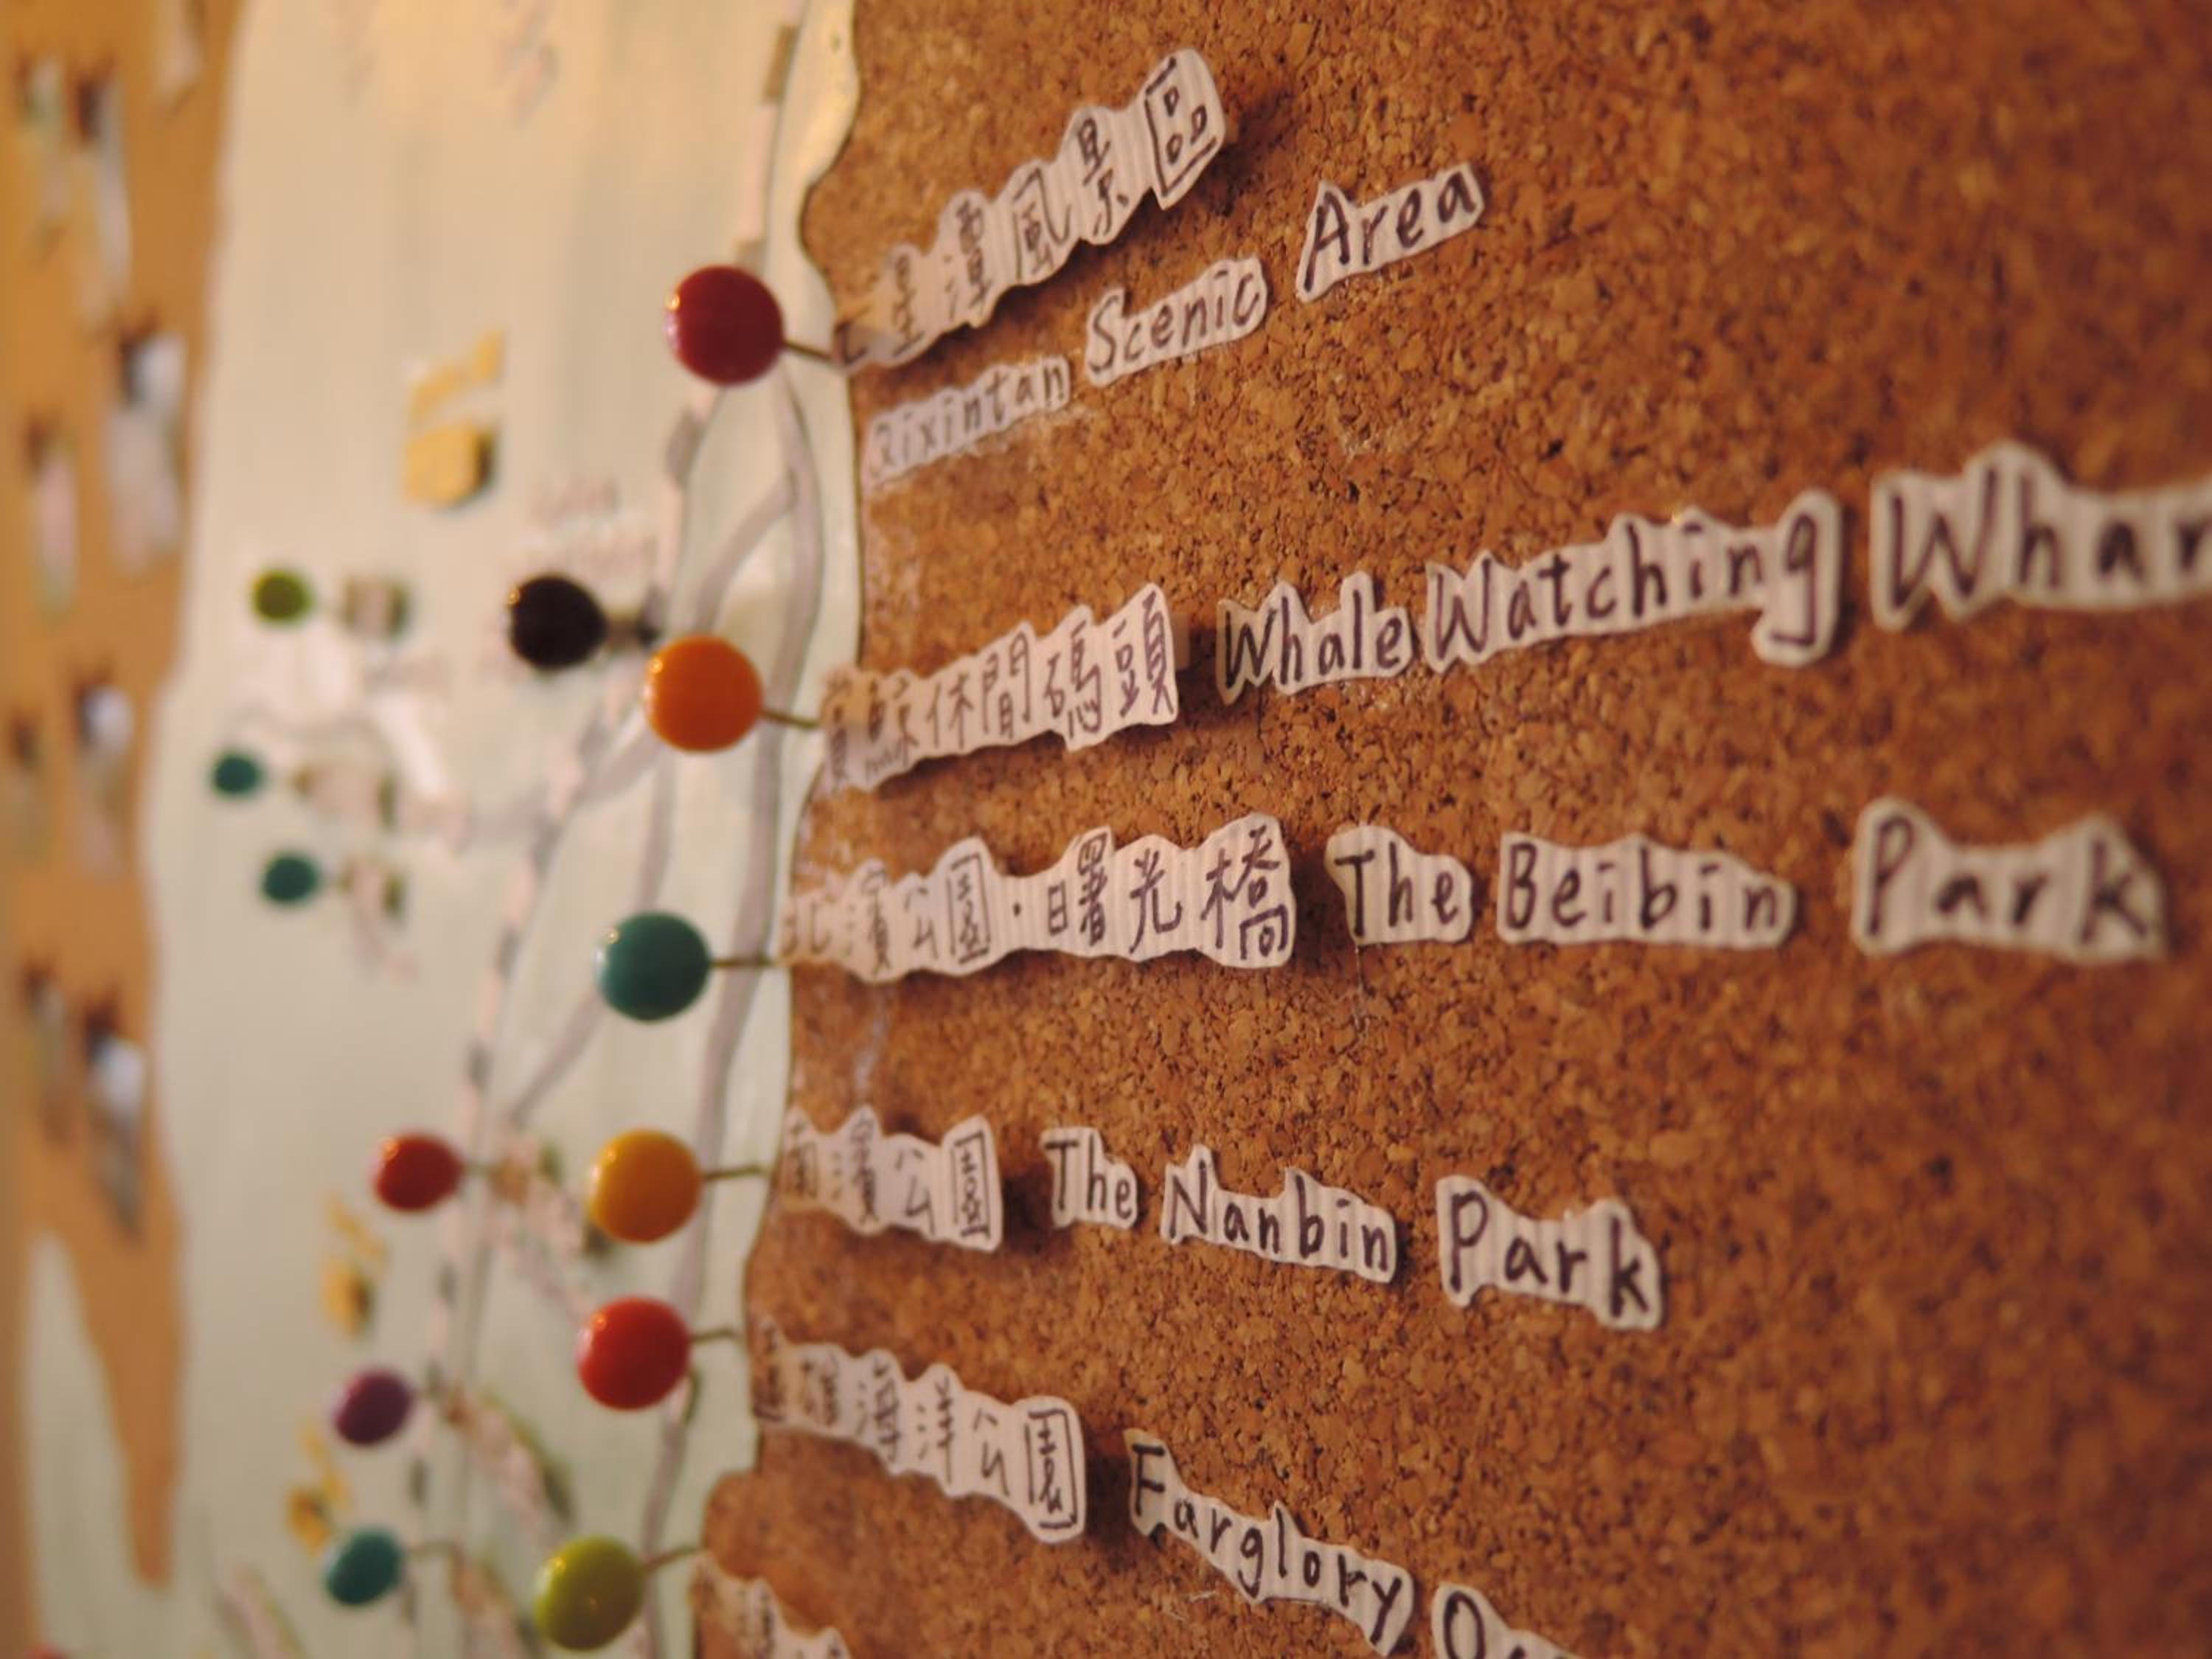 七星潭風景區
Qixintan Scenic Area
賞鯨休閒碼頭 Whale Watching Whar
北濱公園·曙光橋 The Beibin Park
南濱公園 The Nanbin Park
海洋公園 Farglory